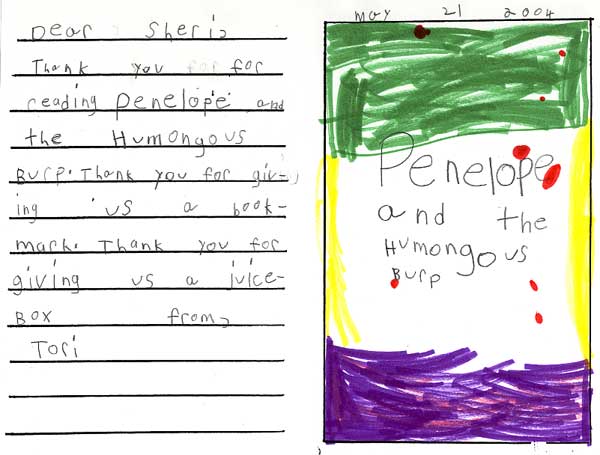 Dear Sheri,
Thank you for for
reading Penelope and
the Humongous
Burp. Thank you for giv-
ing us a book-
mark. Thank you for
giving us a juice-
box from,
Tori
May 21 2004
Penelope
and the
Humongous
Burp